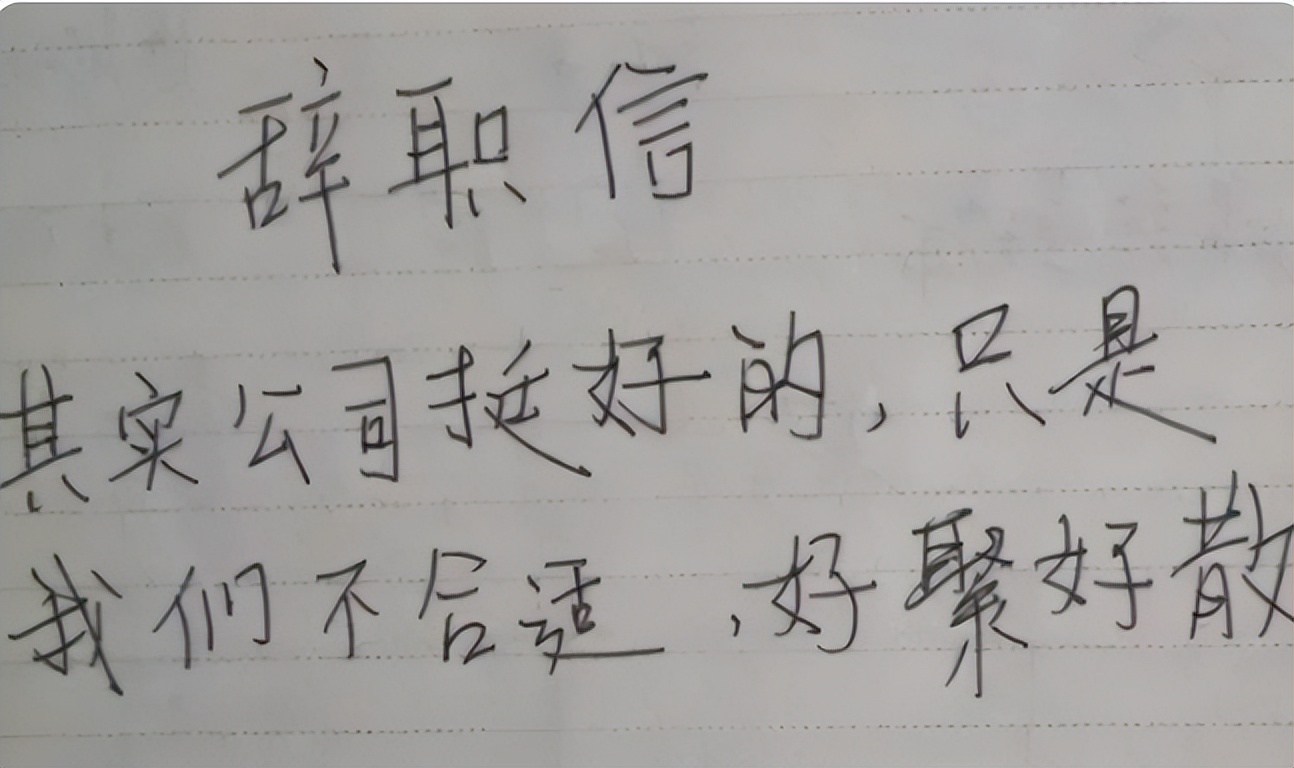 辞职信
其实公司挺好的,只是
我们不合适,好聚好散